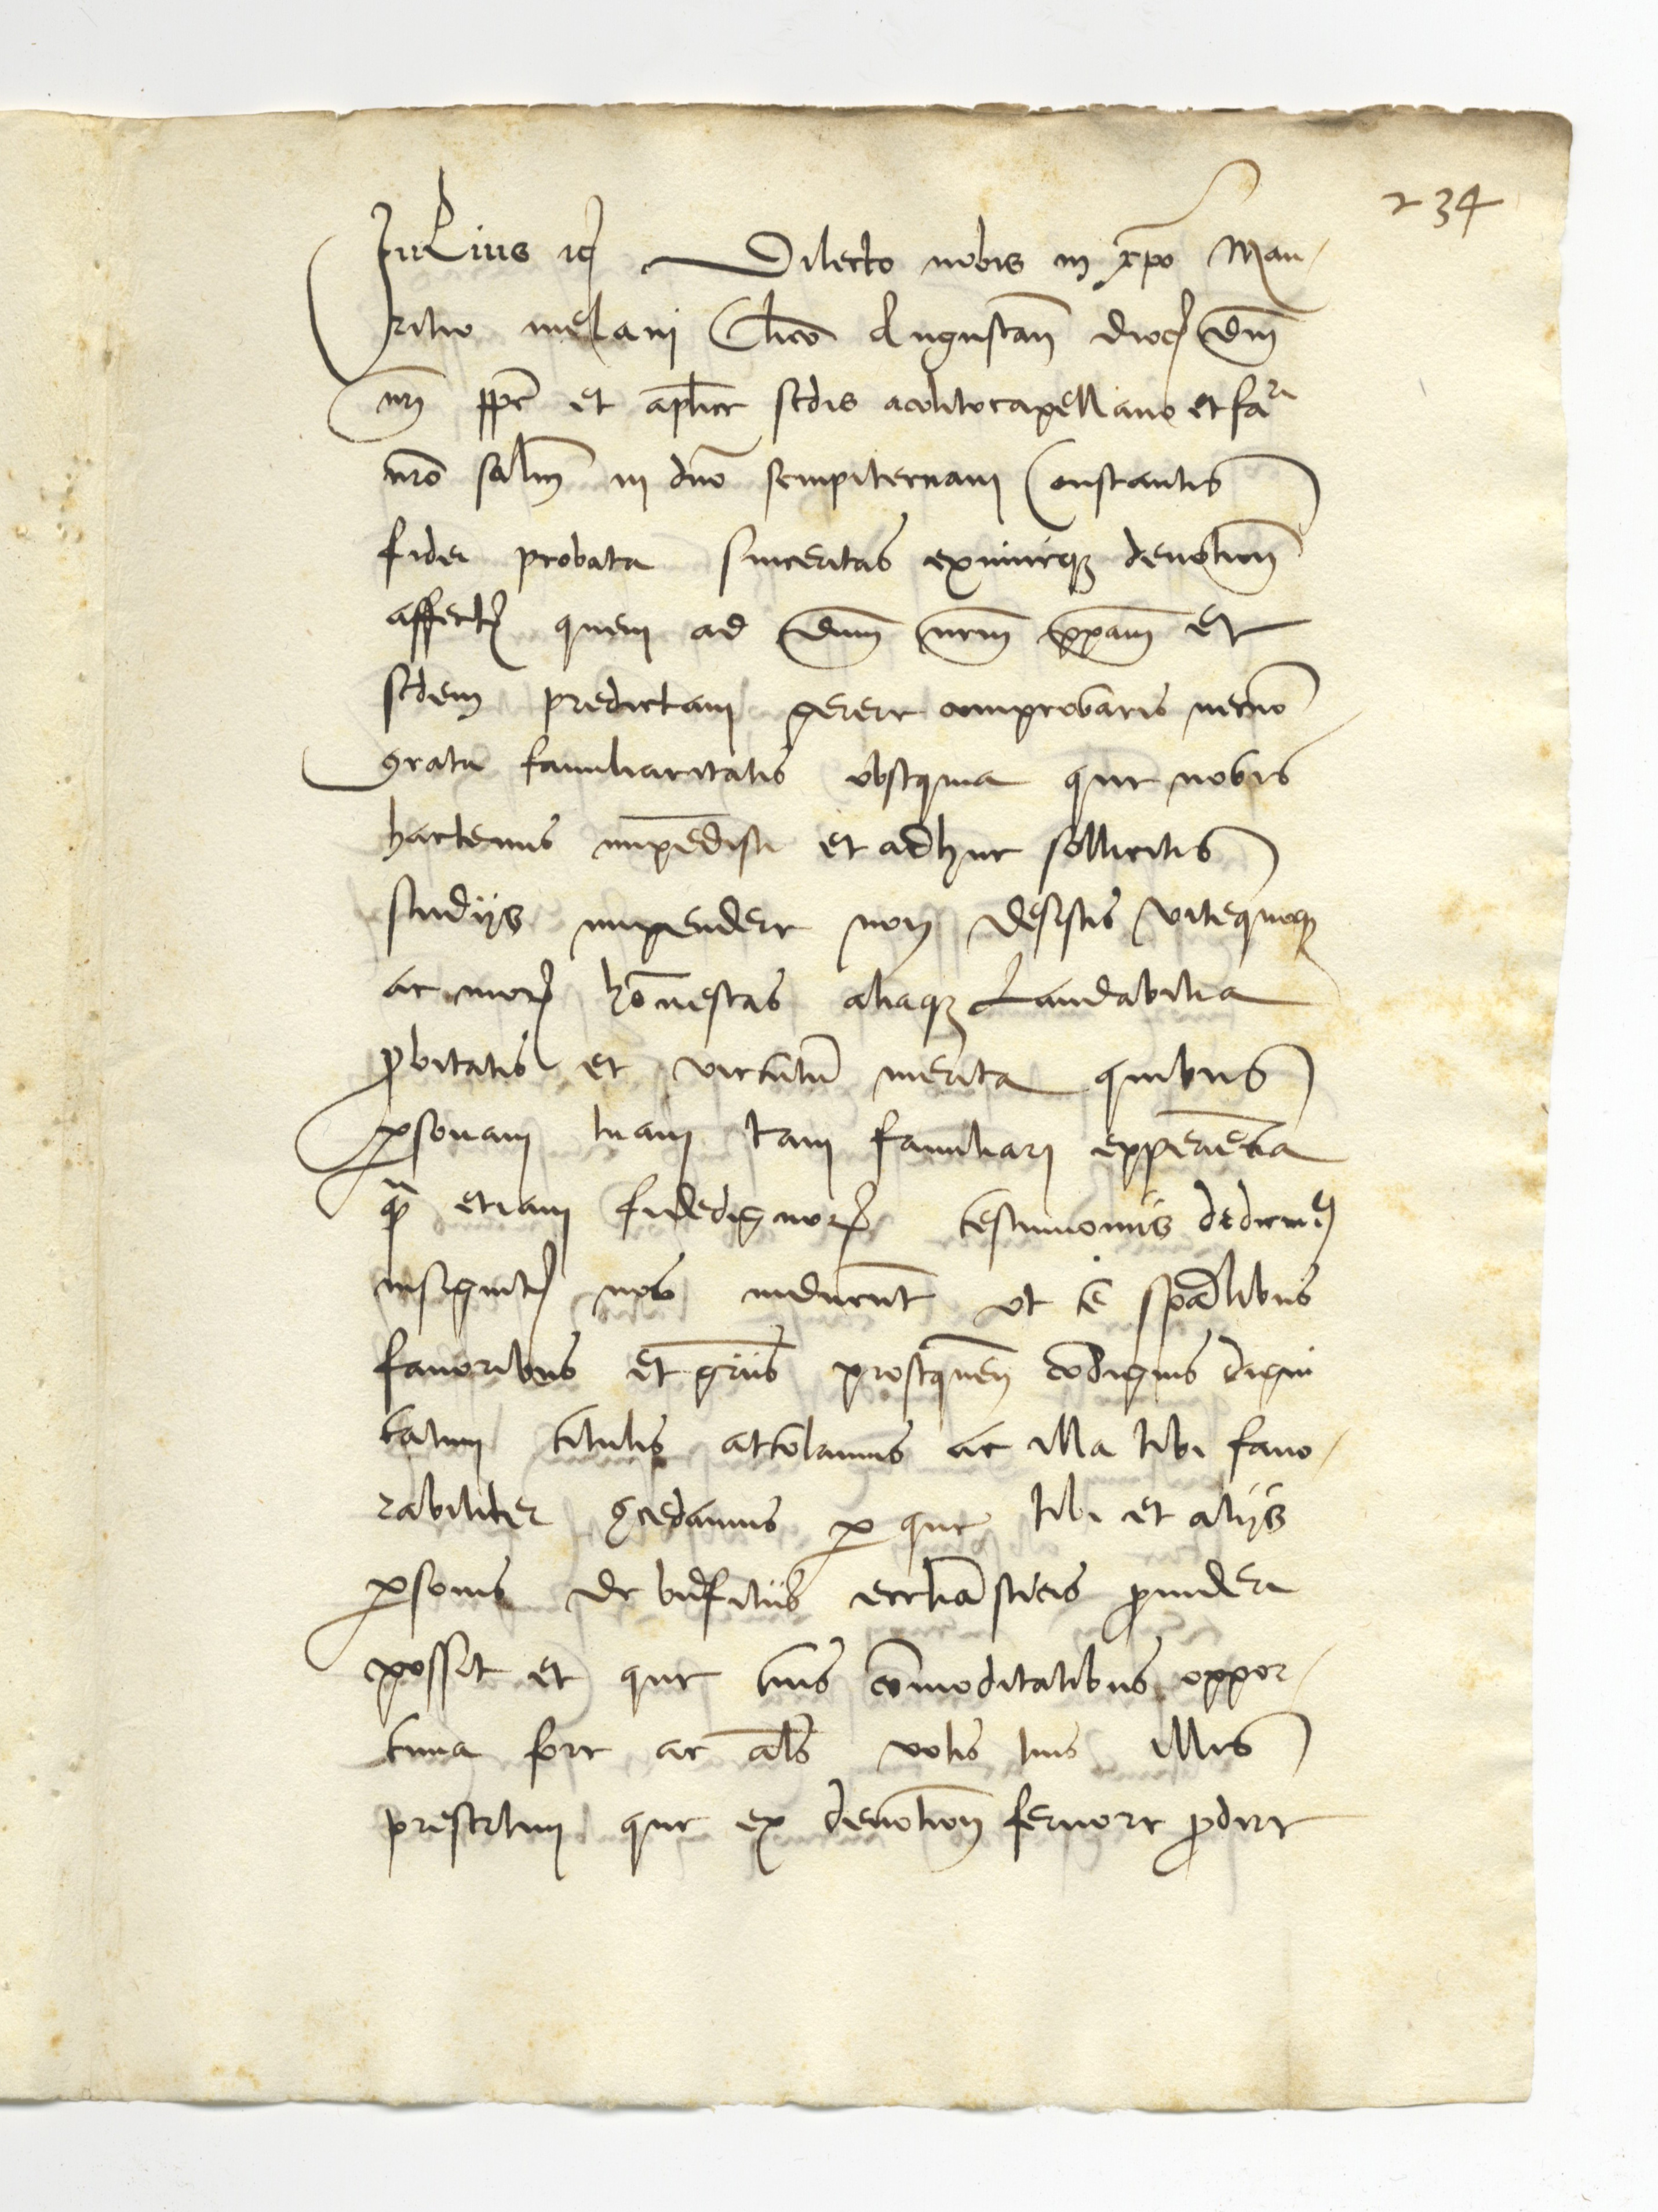 234
Julius etc Dilecto nobis in xpo Mau/
ritio melani Clico Augustan dioc dni
nri ppe et aplice sedis acolito capellano et fari
nro salm in dno sempiternam Constantis
fidei probata sinceritas eximieqz deuotionis
affectus quem ad dnm nrm papam et
sedem predictam gerere comprobaris necno
grata familiaritatis obsequia que nobis
hactenus impendisti et adhuc sollicitis
studijs impendere non desistis vite quoqz
ac moru honnestas aliaqz Laudabilia
probitatis et virtutu merita quibus
psonam tuam tam familiari experietia
qz etiam fidedignoru testimoniis dedicimus
insigniter nos inducunt ut te spealibus
fauoribus et gratiis prosequen condignis digni
tatum titulis attolamus ac illa tibi fauo/
rabiliter concedamus p que tibi et alijs
psonis de bnficiis eccliasticis prouideri
possit et que tuis comoditatibus oppor/
tuna fore ac als votis tuis illis
presertim que ex deuotion feruore prodire